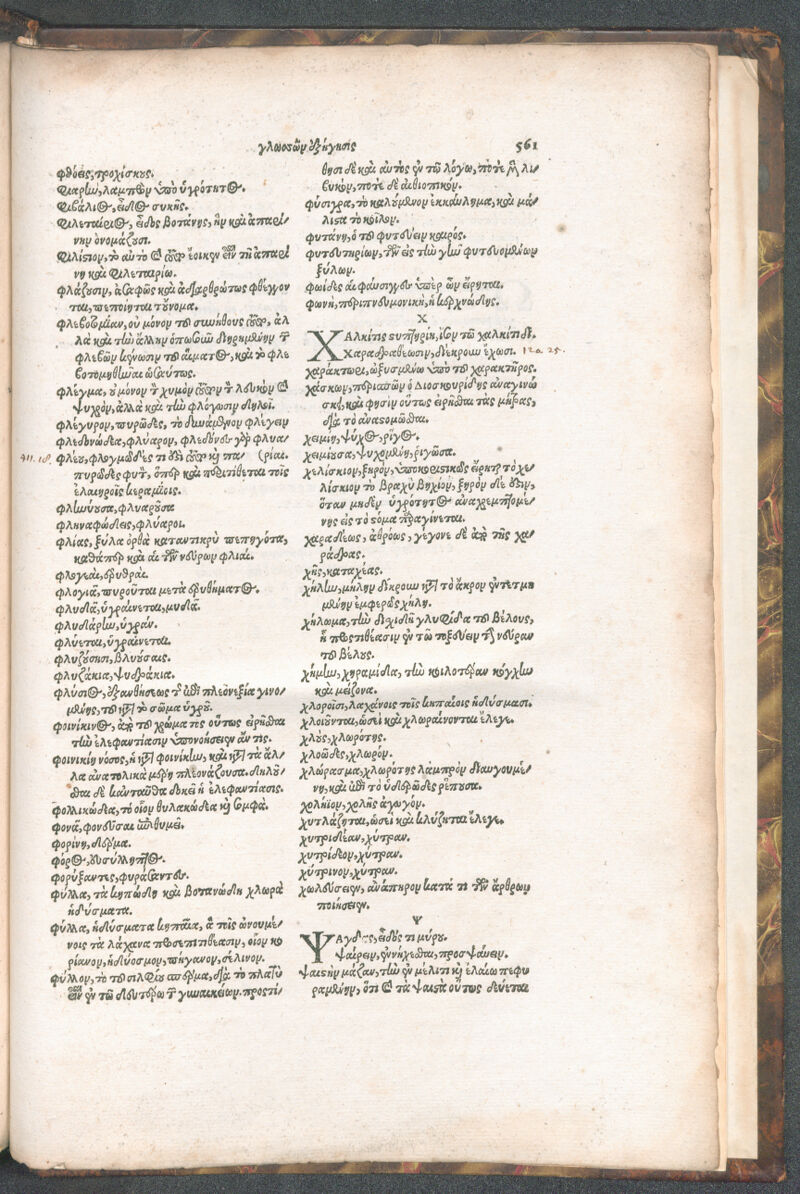 γλωσσῶν ἐξήγησις 561
φθόεις, τροχίσκους.
φιαρὴν, λαμπρὰν ὑπὸ ὑγρότητος.
φιβάλιος, εἶδος συκῆς.
φιλεταίριος, εἶδος βοτάνης, ἣν καὶ ἀπαρί-
νην ὀνομάζουσι.
φλάζουσιν, ἀσαφῶς καὶ ἀδιαρθρώτως φθέγγον
ται, πεποίηται τοὔνομα.
φλεβοτομίαν, οὐ μόνον τὸ συνήθως , ἀλ
λὰ καὶ τὴν ἄλλην
φλεβῶν κένωσιν τοῦ αἵματος, καὶ τὸ φλε
βοτομηθῆναι ὡσαύτως.
φλέγμα, οὐ μόνον τὸν χυμὸν τὸν λευκὸν καὶ
ψυχρὸν, ἀλλὰ καὶ τὴν φλόγωσιν δηλοῖ.
φλέγυρον, πυρῶδες, τὸ δυνάμενον φλέγειν
φλεδονώδεα, φλύαρον, φλεδόνες γὰρ φλυα-
πυρῶδες φυτὸν, ὅπερ καὶ περιτίθεται τοῖς
ἐλαιηροῖς κεραμίοις.
φληνύουσα, φλυαροῦσα
φληναφώδεις, φλύαροι.
φλιὰς, ξύλα ὀρθὰ καταντικρὺ πεπηγότα,
καθάπερ καὶ αἱ τῶν θυρῶν φλιαί.
φλογεαὶ, ἐρυθραί.
φλογιᾷ, πυροῦται μετὰ ἐρυθήματος.
φλυδᾷ, ὑγραίνεται, μυδᾷ.
φλυδαρὴν, ὑγράν.
φλύεται, ὑγραίνεται.
φλυζούσῃσι, βλυούσαις.
φλυζάκια, ψυδράκια.
φλύσιος, ἐξανθήσεως τῆς ἐπὶ πλεονεξίᾳ γινο-
μένης, τοῦ κατὰ τὸ σῶμα ὑγροῦ.
φοινίκινος, ἀπὸ τοῦ χρώματος οὕτως εἰρῆσθαι
τὴν ἐλεφαντίασιν ὑπονοήσειεν ἄν τις.
φοινικίη νόσος, ἡ κατὰ φοινίκην, καὶ κατὰ τὰ ἄλ-
λα ἀνατολικὰ μέρη πλεονάζουσα. δηλοῦ-
σθαι δὲ κἀνταῦθα δοκεῖ ἡ ἐλεφαντίασις.
φολλικώδεα, τὸ οἷον θυλακώδεα καὶ σομφά.
φορίνη, δέρμα.
φορύξαντες, φυράσαντες.
φύλλα, τὰ κηπώδη καὶ βοτανώδη χλωρὰ
ἡδύσματα.
φύλλα, ἡδύσματα κηπαῖα, ἃ τοῖς ὠνουμέ-
νοις τὰ λάχανα προσεπιτιθέασιν, οἷον κο
ρίανον, ἡδύοσμον, πήγανον, σέλινον.
φύλλον, τὸ τοῦ σιλφίου σπέρμα, διὰ τὸ πλατὺ
εἶναι ἐν τῷ δευτέρῳ τῶν γυναικείων. προστί-
θησι δὲ καὶ αὐτὸς ἐν τῷ λόγῳ, ποτὲ μὲν λι-
βυκὸν, ποτὲ δὲ αἰθιοπικόν.
φύσιγγα, τὸ καλούμενον ἐκκαύλημα, καὶ μά-
λιστα τὸ κοῖλον.
φυτάνη, ὁ τοῦ φυτεύειν καιρός.
φυτευτηρίων, τῶν εἰς τὴν γῆν φυτευομένων
ξύλων.
φωΐδες αἱ φαύσιγγες ὑπὲρ ὧν εἴρηται.
φωνὴ, περιπνευμονικὴ, ἡ κερχνώδης.
Χ
ΧΑλκῖτις στυπτηρίη, ἴσον τῷ χαλκίτιδι.
Χαραδραθεωσιν, δίκρουν ἔχωσι. 120. 25.
χαράκτωρι, ὠξυσμένῳ ὑπὸ τοῦ χαρακτῆρος.
χάσκων, περιασσῶν ὁ Διοσκουρίδης ἀναγινώ
σκει, καὶ φησὶν οὕτως εἰρῆσθαι τὰς μήτρας,
διὰ τὸ ἀναστομῶσθαι.
χειμίη, ψύχος, ῥῖγος.
χειμίουσα, ψυχομένη, ῥιγῶσα.
χελίσκιον, ξηρὸν, ὑποκοριστικῶς εἴρηται τὸ χε-
λίσκιον τὸ βραχὺ βηχίον, ξηρὸν δέ ἐστιν,
ὅταν μηδὲν ὑγρότητος ἀναχρεμπτομέ-
νης εἰς τὸ στόμα παραγίνεται.
χαραδέως, ἀθρόως, γέγονε δὲ ἀπὸ τῆς χα-
ράδρας.
χῆς, καταχέας.
χηλὴν, μήλην δίκρουν κατὰ τὸ ἄκρον ἐντετμη
μένην ἐμφερῶς χηλῇ.
χήλωμα, τὴν διχιδῆ γλυφίδα τοῦ βέλους,
ᾗ προστιθέασιν ἐν τῷ τοξεύειν τὴν νευρὰν
τοῦ βέλους.
χήμην, χηραμίδα, τὴν κοιλοτέραν κόγχην
καὶ μείζονα.
χλοροῖσι, λαχάνοις τοῖς κηπαίοις ἡδύσμασι.
χλοιοῦνται, ὡσεὶ καὶ χλωραίνονται ἔλεγε.
χλοὸς, χλωρότης.
χλοῶδες, χλωρόν.
χλώρασμα, χλωρότης λαμπρὸν διαυγουμέ-
νη, καὶ ἐπὶ τὸ ὑδρῶδες ῥέπουσα.
χολήϊον, χολῆς ἀγωγόν.
χυτλάζηται, ὡσεὶ καὶ κλύζηται ἔλεγε.
χυτριδέαν, χύτραν.
χυτρίδεον, χύτραν.
χύτρινον, χύτραν.
χωλεύσειεν, ἀνάπηρον κατά τι τῶν ἄρθρων
ποιήσειεν.
Ψ
ΨΑγδᾶς, εἶδός τι μύρου.
Ψαίρειν, ἐννήχεσθαι, προσψαύειν.
Ψαιστὴν μάζαν, τὴν ἐν μέλιτι καὶ ἐλαίῳ πεφυ
ραμένην, ὅτι καὶ τὰ ψαιστὰ οὕτως δεύεται